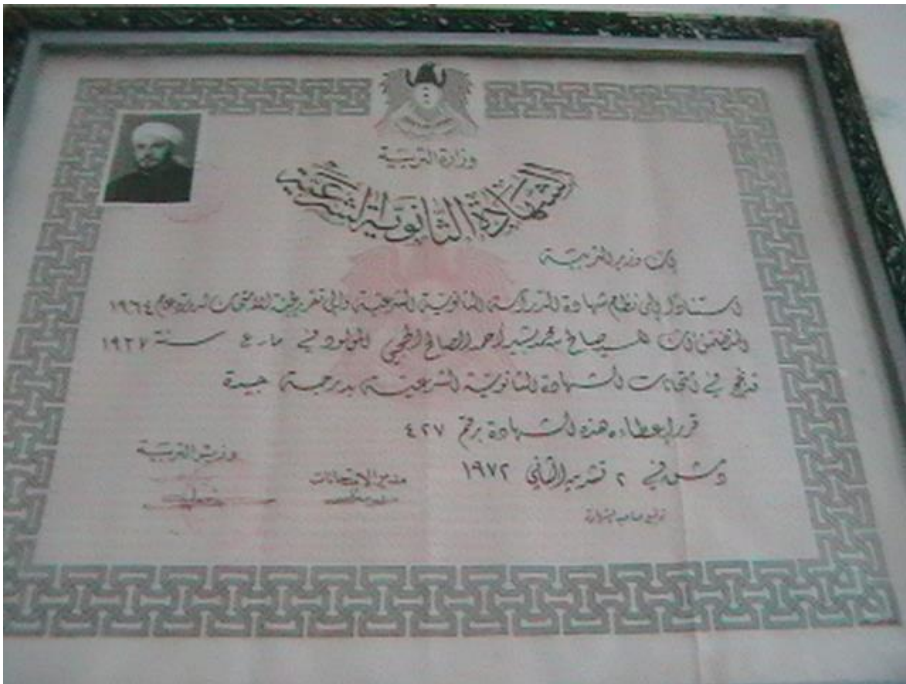 وزارة التربية
الشهادة الثانوية الشرعية
إن وزير التربية
استناداً إلى نظام شهادة الدراسة الثانوية الشرعية وإلى تقرير لجنة الامتحانات لدورة عام ١٩٦٤
المتضمن أن السيد صالح بشير أحمد الصالح المولود في مارع سنة ١٩٢٧
قد نجح في امتحانات الشهادة الثانوية الشرعية بدرجة جيدة
قرر إعطاءه هذه الشهادة برقم ٤٢٧
دمشق في ٢ تشرين الثاني ١٩٧٢
مدير الامتحانات
وزير التربية
توقيع صاحب الشهادة